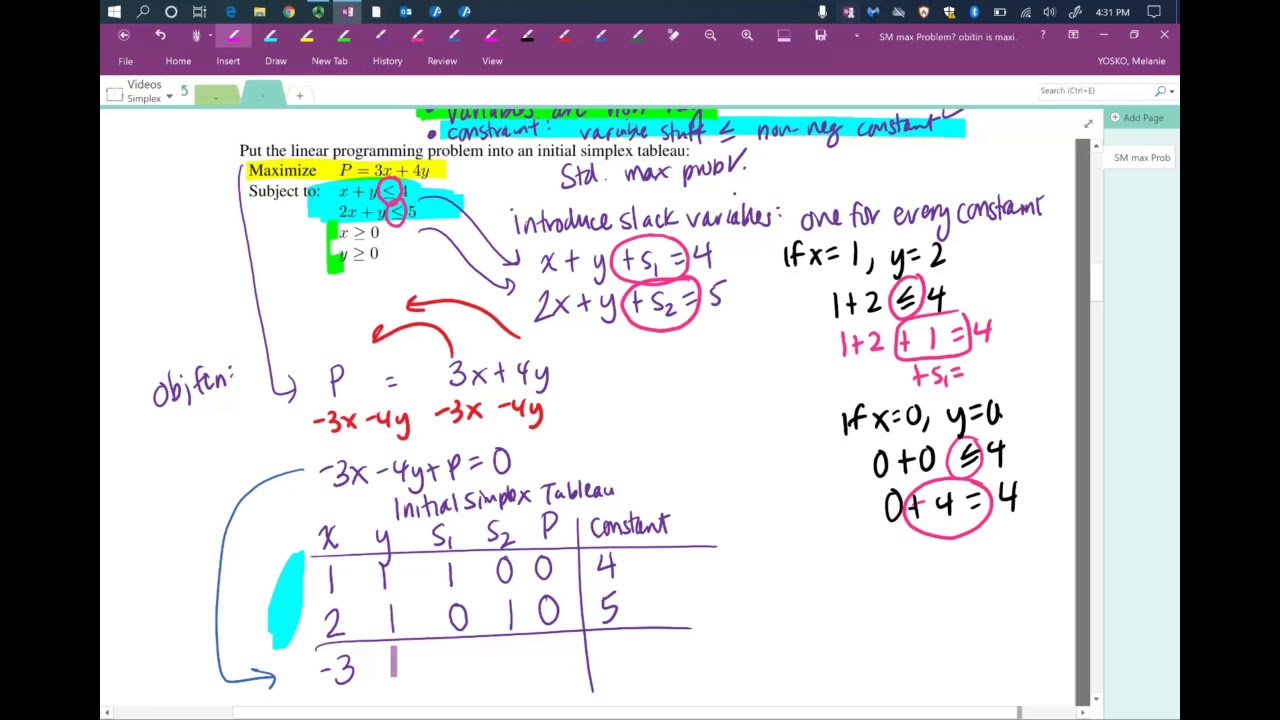 4:31 PM
SM max Problem? obitin is maxi..
File Home Insert Draw New Tab History Review View
YOSKO, Melanie
Videos
Simplex
Search (Ctrl+E)
Add Page
SM max Prob
• variables are non neg
• constraint: variable stuff ≤ non-neg constant
Put the linear programming problem into an initial simplex tableau:
Std. max prob
Maximize P = 3x + 4y
Subject to: x + y ≤ 4
2x + y ≤ 5
x ≥ 0
y ≥ 0
introduce slack variables: one for every constraint
x + y + s₁ = 4
2x + y + s₂ = 5
If x = 1, y = 2
1 + 2 ≤ 4
1 + 2 + 1 = 4
+ s₁ =
If x = 0, y = 0
0 + 0 ≤ 4
0 + 4 = 4
Obj fcn:
P = 3x + 4y
-3x -4y -3x -4y
-3x - 4y + P = 0
Initial Simplex Tableau
x y s₁ s₂ P constant
1 1 1 0 0 4
2 1 0 1 0 5
-3